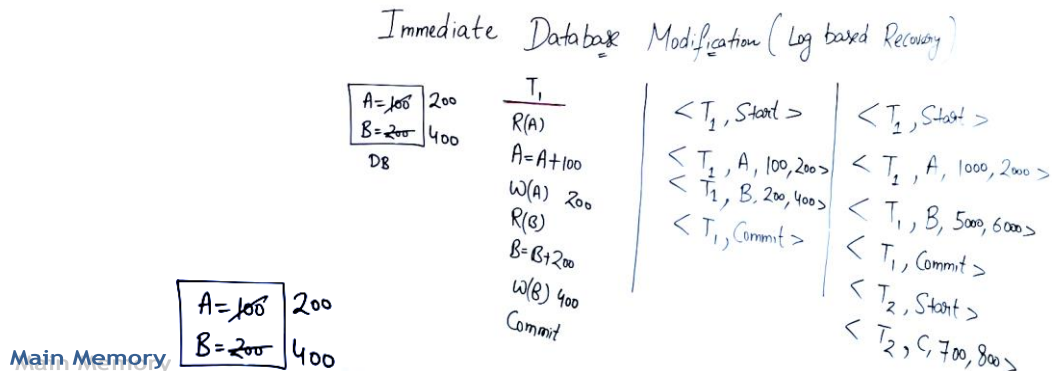 Immediate Database Modification (Log based Recovery)
A=100 200
B=200 400
DB
T1
R(A)
A=A+100
W(A) 200
R(B)
B=B+200
W(B) 400
Commit
<T1, Start>
<T1, A, 100, 200>
<T1, B, 200, 400>
<T1, Commit>
<T1, Start>
<T1, A, 1000, 2000>
<T1, B, 5000, 6000>
<T1, Commit>
<T2, Start>
<T2, C, 700, 800>
A=100 200
B=200 400
Main Memory